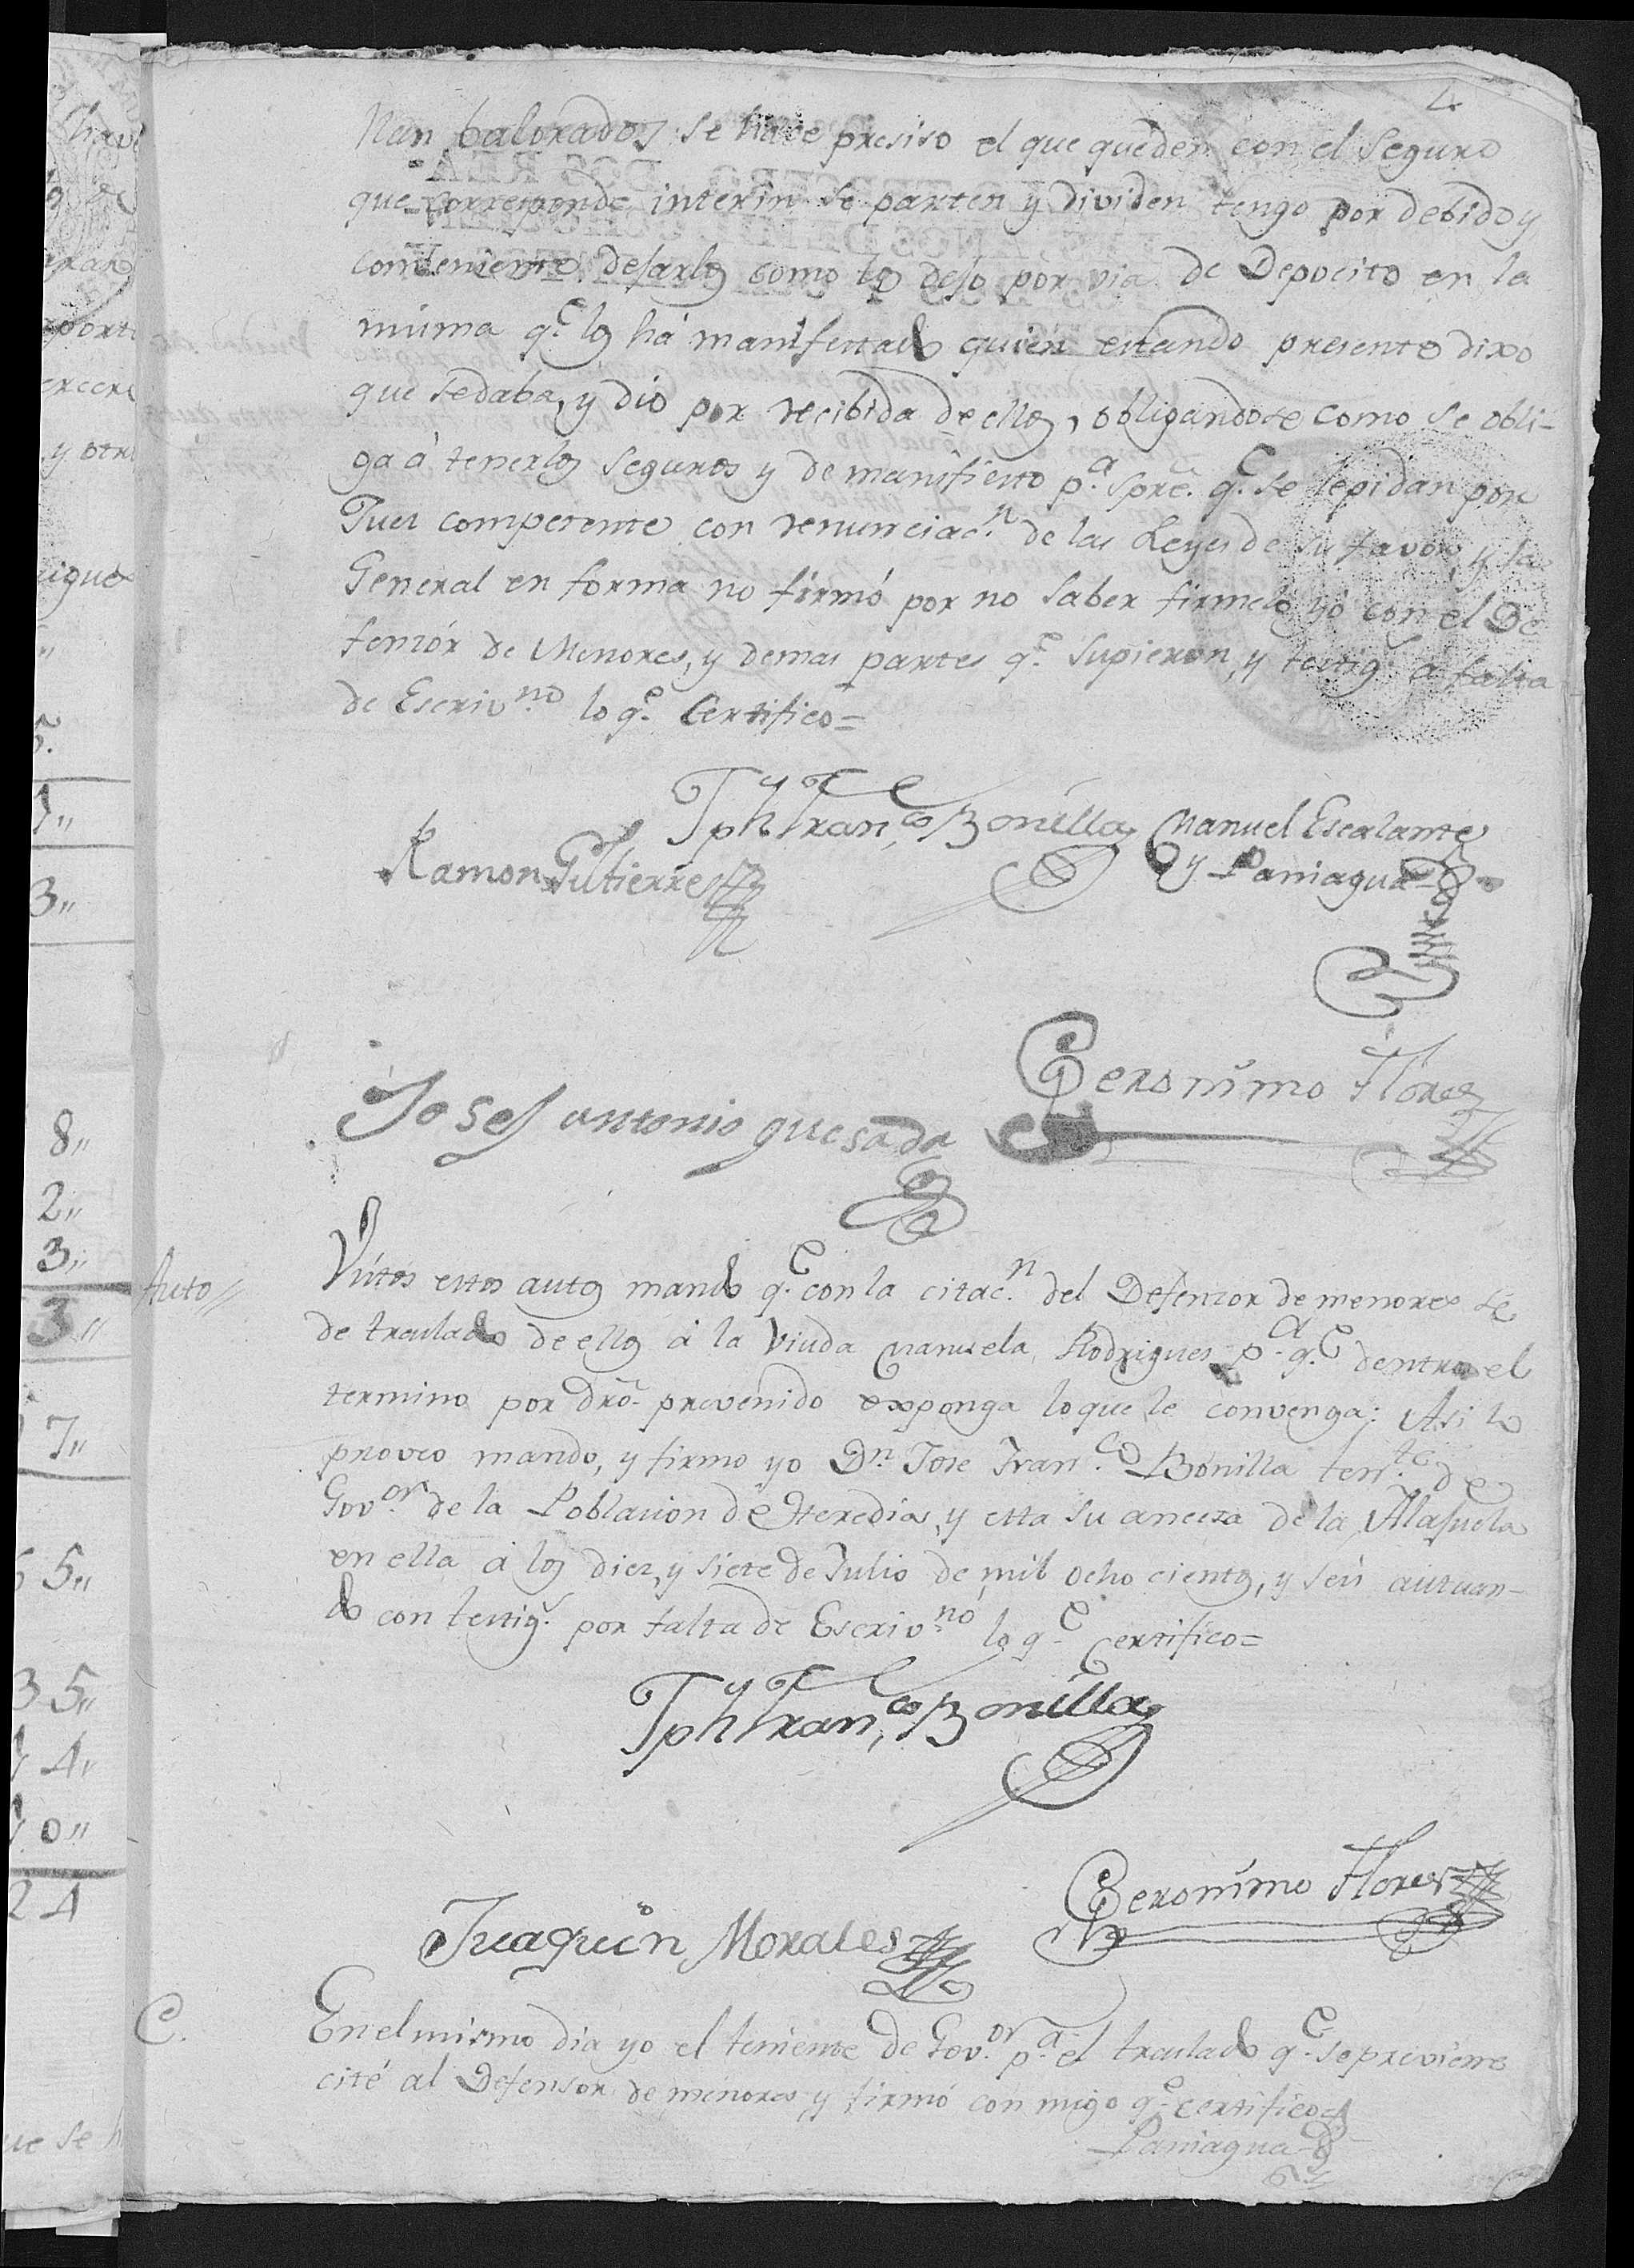 4
Nan balorados se hace presiso el que queden con el seguro
que corresponde interin se parten y dividen tengo por debido y
combeniente desarlos como lo deso por via de Depocito en la
misma q.e los há manifestado quien estando presente dixo
que se daba, y dio por recibida de ellos, obligandose como se obli-
ga á tenerlos seguros y de manifiesto p.a spre. q.e se le pidan por
Jues competente con renunciac.n de las Leyes de su favor, y la
General en forma no firmó por no saber firmelo yó con el De
fensór de Menores, y demas partes q.e supieron, y testig.s a falta
de Escriv.no lo q.e Certifico=
Jph Fran,co Bonilla
Manuel Escalante
y Paniagua
Ramon Gutierres
Geronimo Flores
Josef antonio quesada
Auto
Vistos estos autos mando q.e con la citac.n del Defensor de menores se
de traslado de ellos á la Viuda Manuela Rodrigues p.a q.e dentro el
termino por dro. prevenido exponga lo que le convenga: Asi lo
proveo mando, y firmo yo D.n Jose Fran.co Bonilla ten.te de
Gov.or de la Poblacion de Heredia, y esta su anecsa de la Alajuela
en ella á los dies, y siete de Julio de mil ocho cientos, y seis actuan-
do con testig.s por falta de Escriv.no lo q.e Certifico=
Jph Fran,co Bonilla
Geronimo Flores
Juaquin Morales
C.
En el mismo dia yo el teniente de Gov.or p.a el traslado q.e se previene
cité al Defensor de menores y firmó con migo q.e certifico=
Paniagua